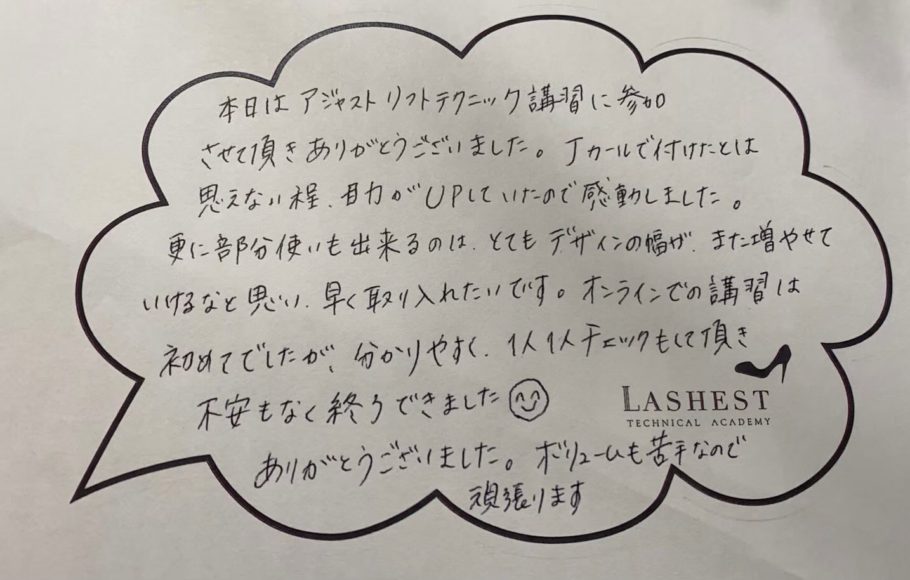 本日は アジャストリフトテクニック講習に参加
させて頂きありがとうございました。Jカールで付けたとは
思えない程、目力がUPしていたので感動しました。
更に部分使いも出来るのは、とてもデザインの幅が、また増やせて
いけるなと思い、早く取り入れたいです。オンラインでの講習は
初めてでしたが、分かりやすく、1人1人チェックもして頂き
不安もなく終了できました
LASHEST
TECHNICAL ACADEMY
ありがとうございました。ボリュームも苦手なので
頑張ります